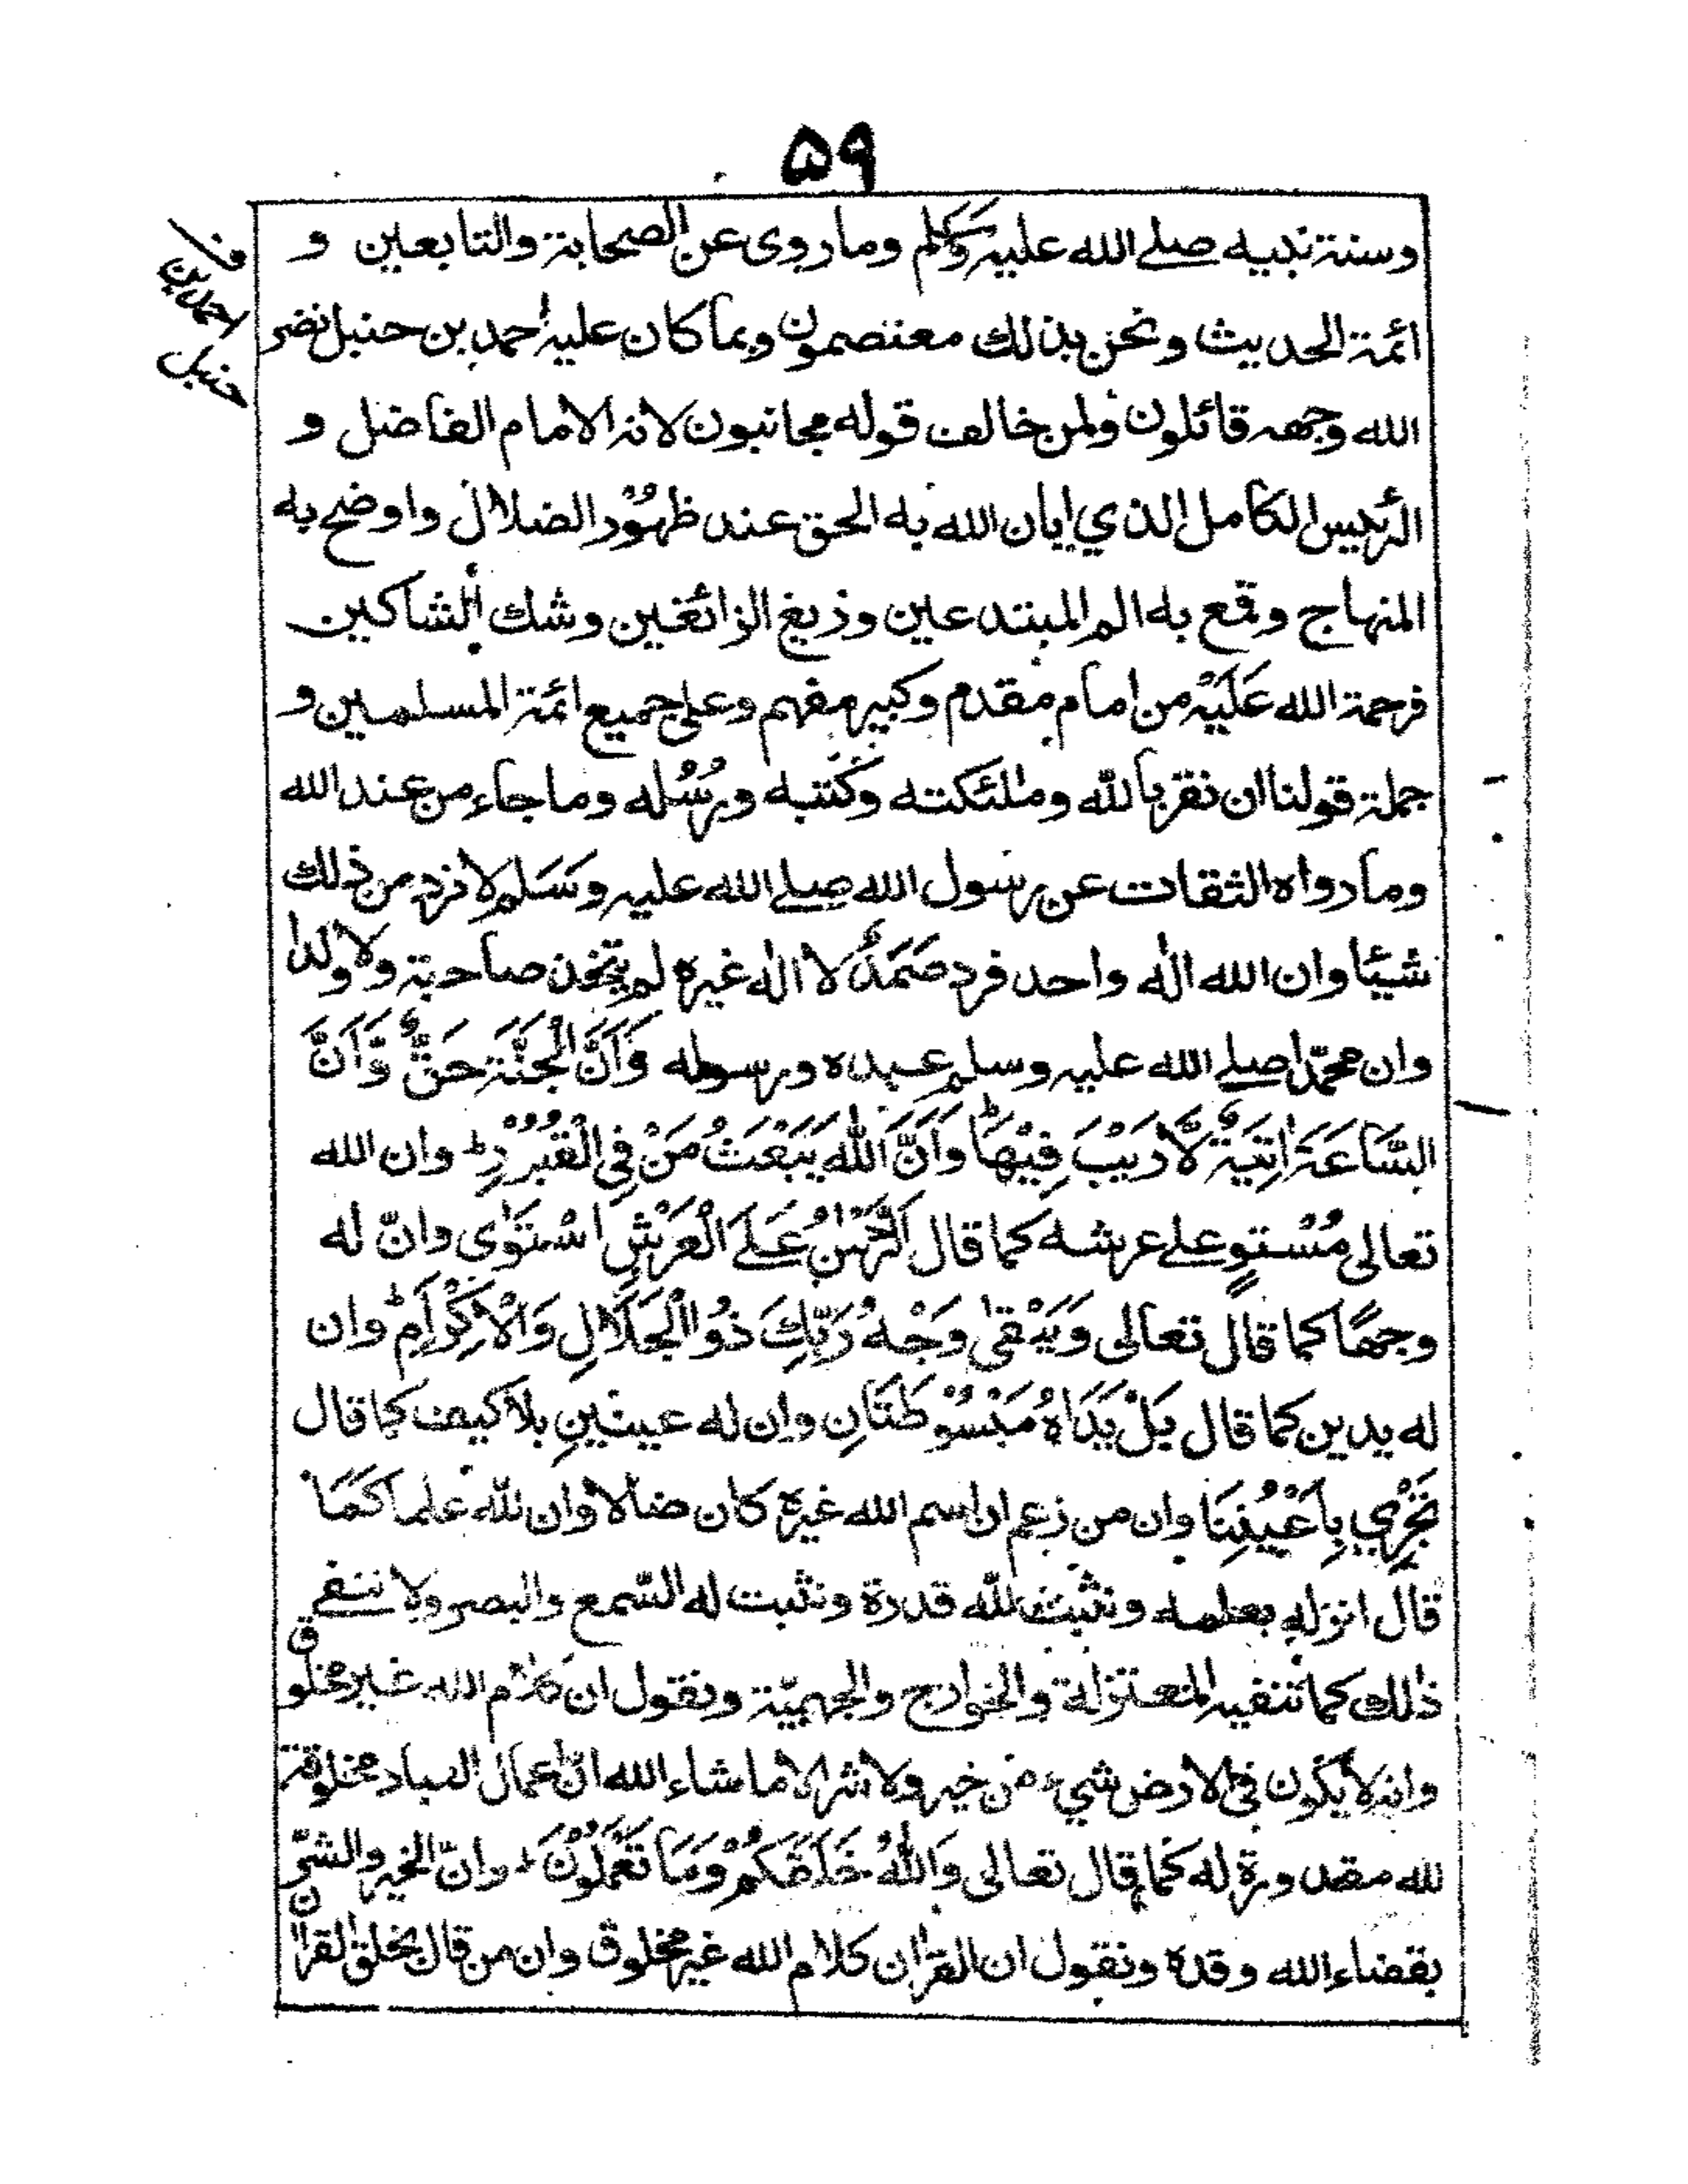 ۵۹
وسنة نبيه صلے الله عليه وسلم وما روی عن الصحابة والتابعين و
ائمة الحديث ونحن بذلك معتصمون وبما كان عليه احمد بن حنبل نضر
الله وجهه قائلون ولمن خالف قوله مجانبون لانه الامام الفاضل و
الرئيس الكامل الذي ابان الله به الحق عند ظهُوْر الضلال واوضح به
المنهاج وقمع به المبتدعين وزيغ الزائغين وشك الشاكين
فرحمة الله عَلَيْه من امام مقدم وكبير مفهم وعلی جميع ائمة المسلمين و
جملة قولنا ان نقر بالله وملئكته وكُتبه ورُسُله وما جاء من عند الله
وما رواه الثقات عن رسول الله صلے الله عليه وسَلم لا نرد من ذلك
شيئا وان الله اله واحد فرد صَمَدٌ لا اله غيره لم يتخذ صاحبة ولا ولدا
وان محمّدا صلے الله عليه وسلم عبده ورسوله وَاَنَّ الْجَنَّةَ حَقٌّ وَّاَنَّ
السَّاعَةَ اٰتِيَةٌ لَّا رَيْبَ فِيْهَا وَاَنَّ اللّٰهَ يَبْعَثُ مَنْ فِي الْقُبُوْرِ ط وان الله
تعالی مُسْتوٍ علے عرشه كما قال اَلرَّحْمٰنُ عَلَے الْعَرْشِ اسْتَوٰی وانّ له
وجهًا كما قال تعالی وَيَبْقٰی وَجْهُ رَبِّكَ ذُوالْجَلَالِ وَالْاِكْرَامِ وان
له يدين كما قال بَلْ يَدَاهُ مَبْسُوْطَتَانِ وان له عينينِ بلا كيف كما قال
تَجْرِي بِاَعْيُنِنَا وان من زعم ان اسم الله غيره كان ضالا وان للّٰه علما كَمَا
قال انزله بعلمه ونثبت للّٰه قدرة ونثبت له السّمع والبصر ولا ننفے
ذلك كما تنفيه المعتزلة والخوارج والجهميّة ونقول ان كلام الله غير مخلوق
وانه لا يكون فی الارض شيء من خير ولا شر الا ما شاء الله انّ اعمال العباد مخلوقة
لله مقدورة له كما قال تعالی وَاللّٰهُ خَلَقَكُمْ وَمَا تَعْمَلُوْنَ ط وانّ الخير والشرّ
بقضاء الله وقدره ونقول ان القران كلام الله غير مخلوق وان من قال بخلق القران
احمد بن
حنبل